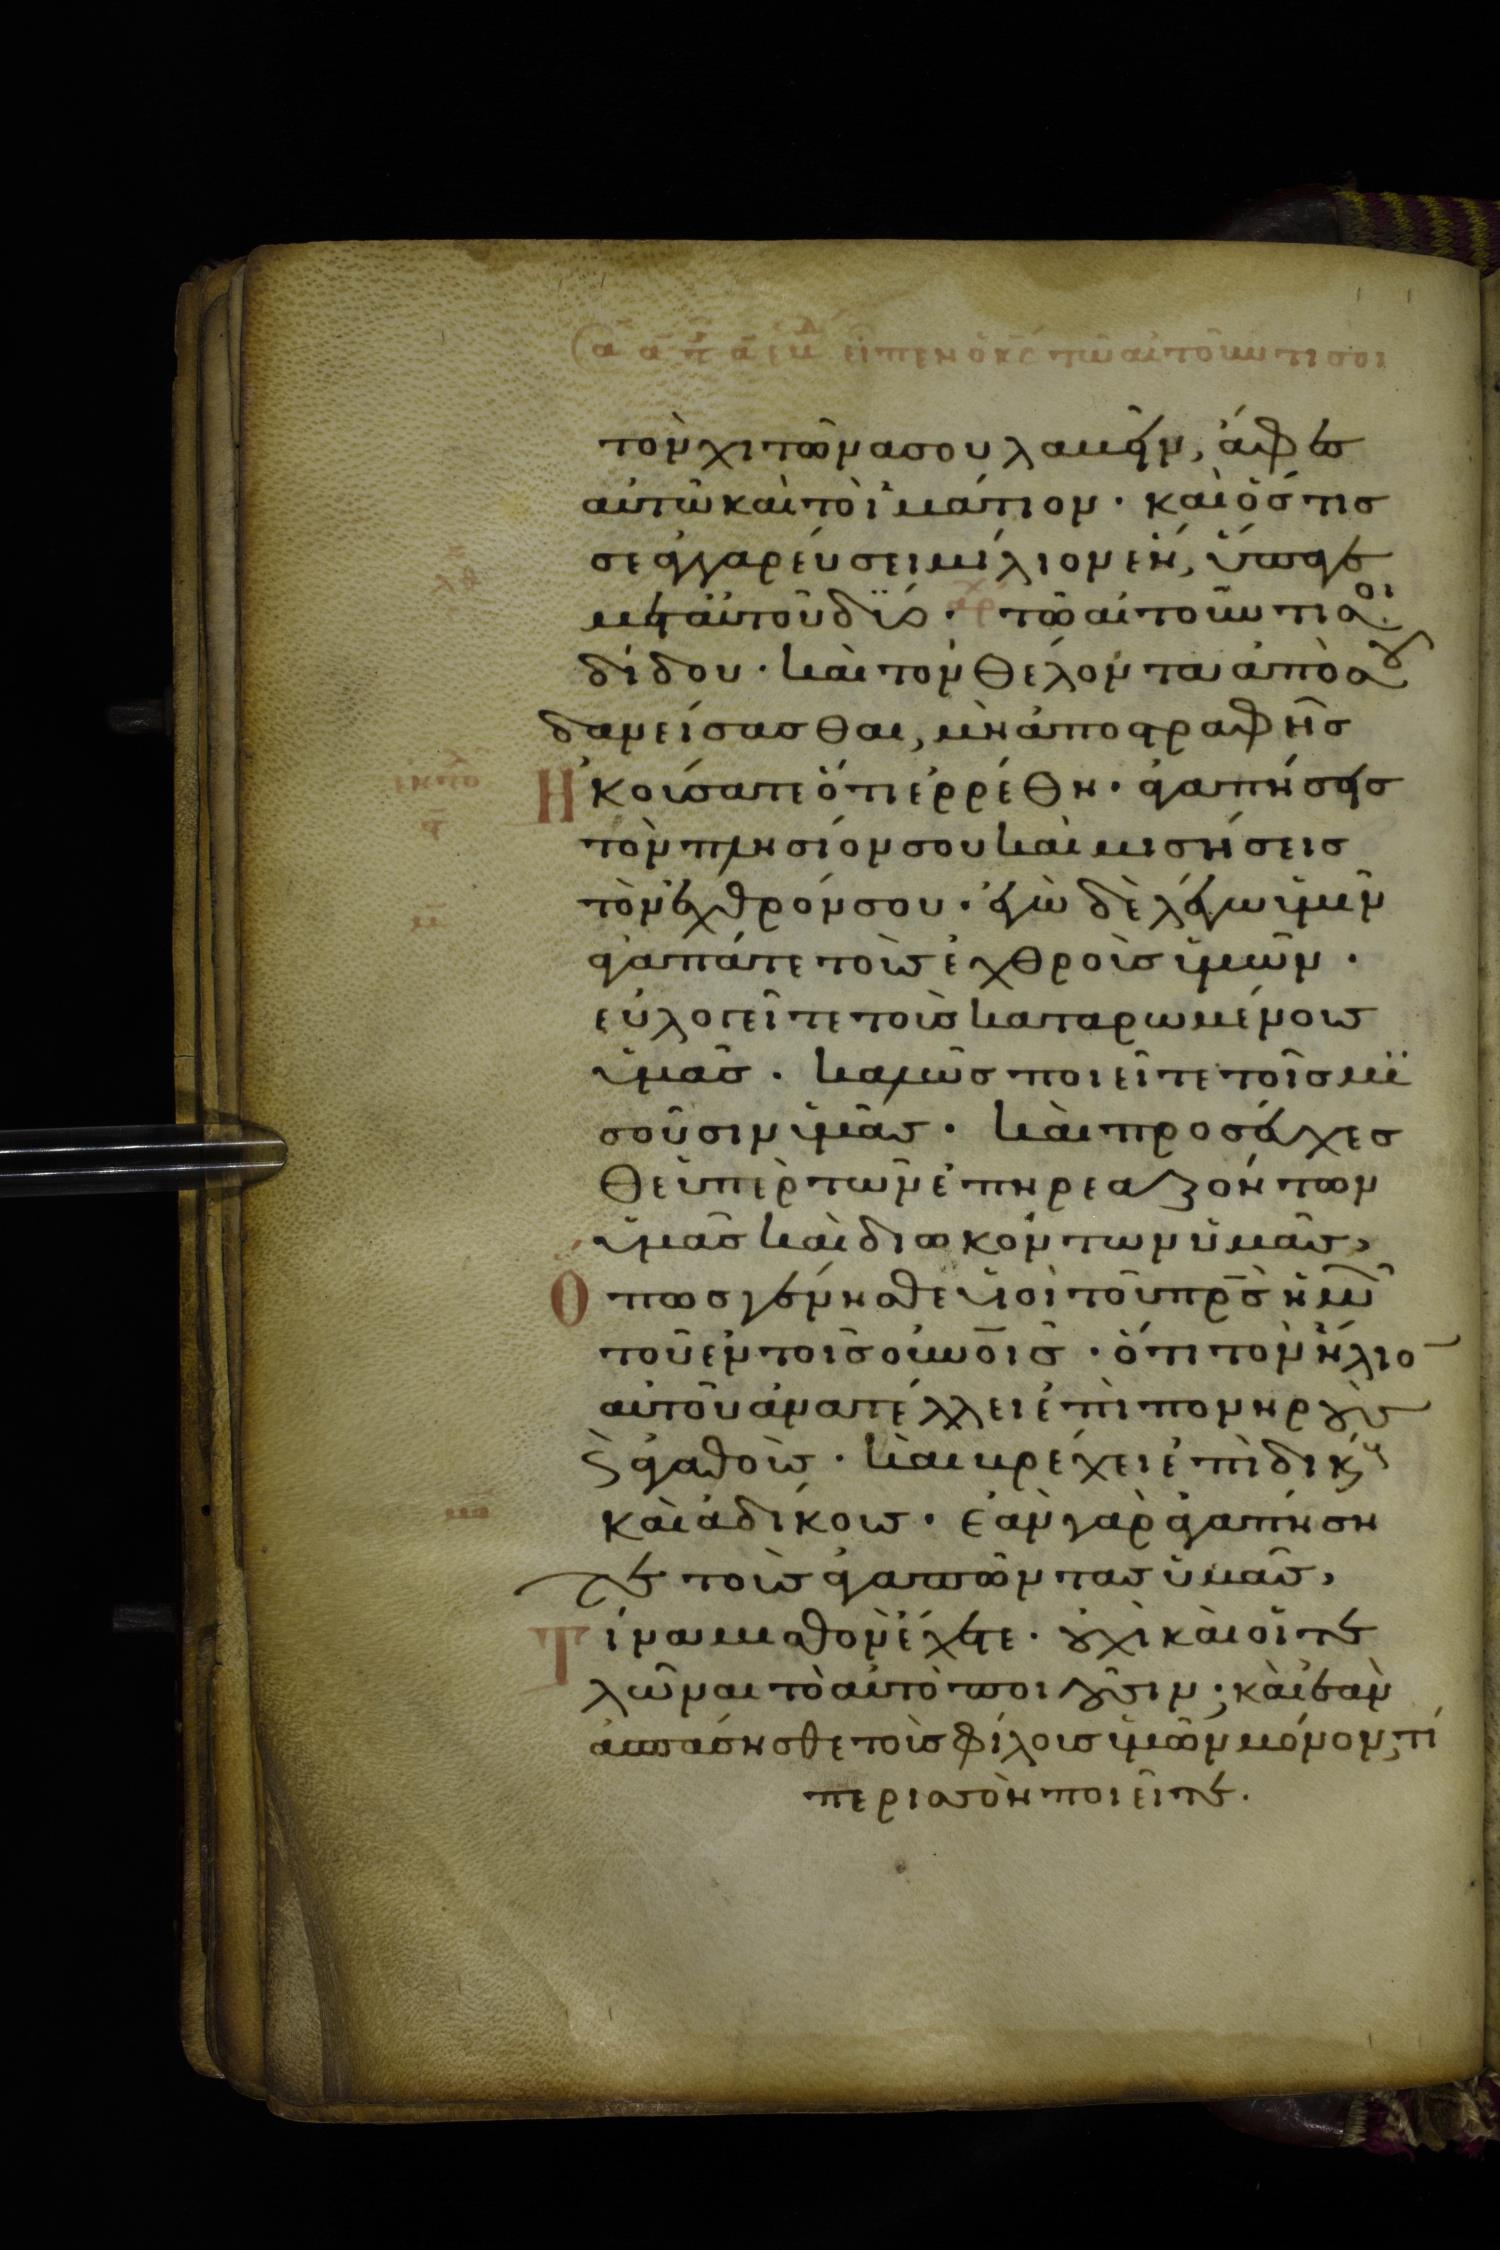 εἶπεν ὁ κς τῶ αἰτοῦντι σοι
τὸν χιτῶνα σου λαβεῖν, ἄφες
αὐτῶ καὶ τὸ ἱμάτιον · καὶ ὅστις
σε ἀγγαρεύσει μίλιον ἕν, ὕπαγε
μετ αὐτοῦ δύο · τῶ αἰτοῦντι σοι
δίδου · καὶ τὸν θέλοντα ἀπὸ σου
δανείσασθαι, μὴ ἀποστραφῆς
Ἠκούσατε ὅτι ἐρρέθη · ἀγαπήσεις
τὸν πλησίον σου καὶ μισήσεις
τὸν ἐχθρόν σου · ἐγὼ δὲ λέγω ὑμῖν
ἀγαπάτε τοὺς ἐχθροὺς ὑμῶν ·
εὐλογεῖτε τοὺς καταρωμένους
ὑμᾶς · καλῶς ποιεῖτε τοῖς μι
σοῦσιν ὑμᾶς · καὶ προσεύχεσ
θε ὑπὲρ τῶν ἐπηρεαζόντων
ὑμᾶς καὶ διωκόντων ὑμᾶς,
Ὅπως γένησθε υἱοὶ τοῦ πρς ὑμῶν
τοῦ ἐν τοῖς οὐνοις · ὅτι τὸν ἥλιον
αὐτοῦ ἀνατέλλει ἐπὶ πονηροὺς
καὶ ἀγαθοὺς · καὶ βρέχει ἐπὶ δικαίους
καὶ ἀδίκους · ἐὰν γὰρ ἀγαπήση
τε τοὺς ἀγαπῶντας ὑμᾶς,
Τίνα μισθὸν ἔχετε · οὐχὶ καὶ οἱ τε
λῶναι τὸ αὐτὸ ποιοῦσιν · καὶ ἐὰν
ἀσπάσησθε τοὺς φίλους ὑμῶν μόνον, τί
περισσὸν ποιεῖτε.